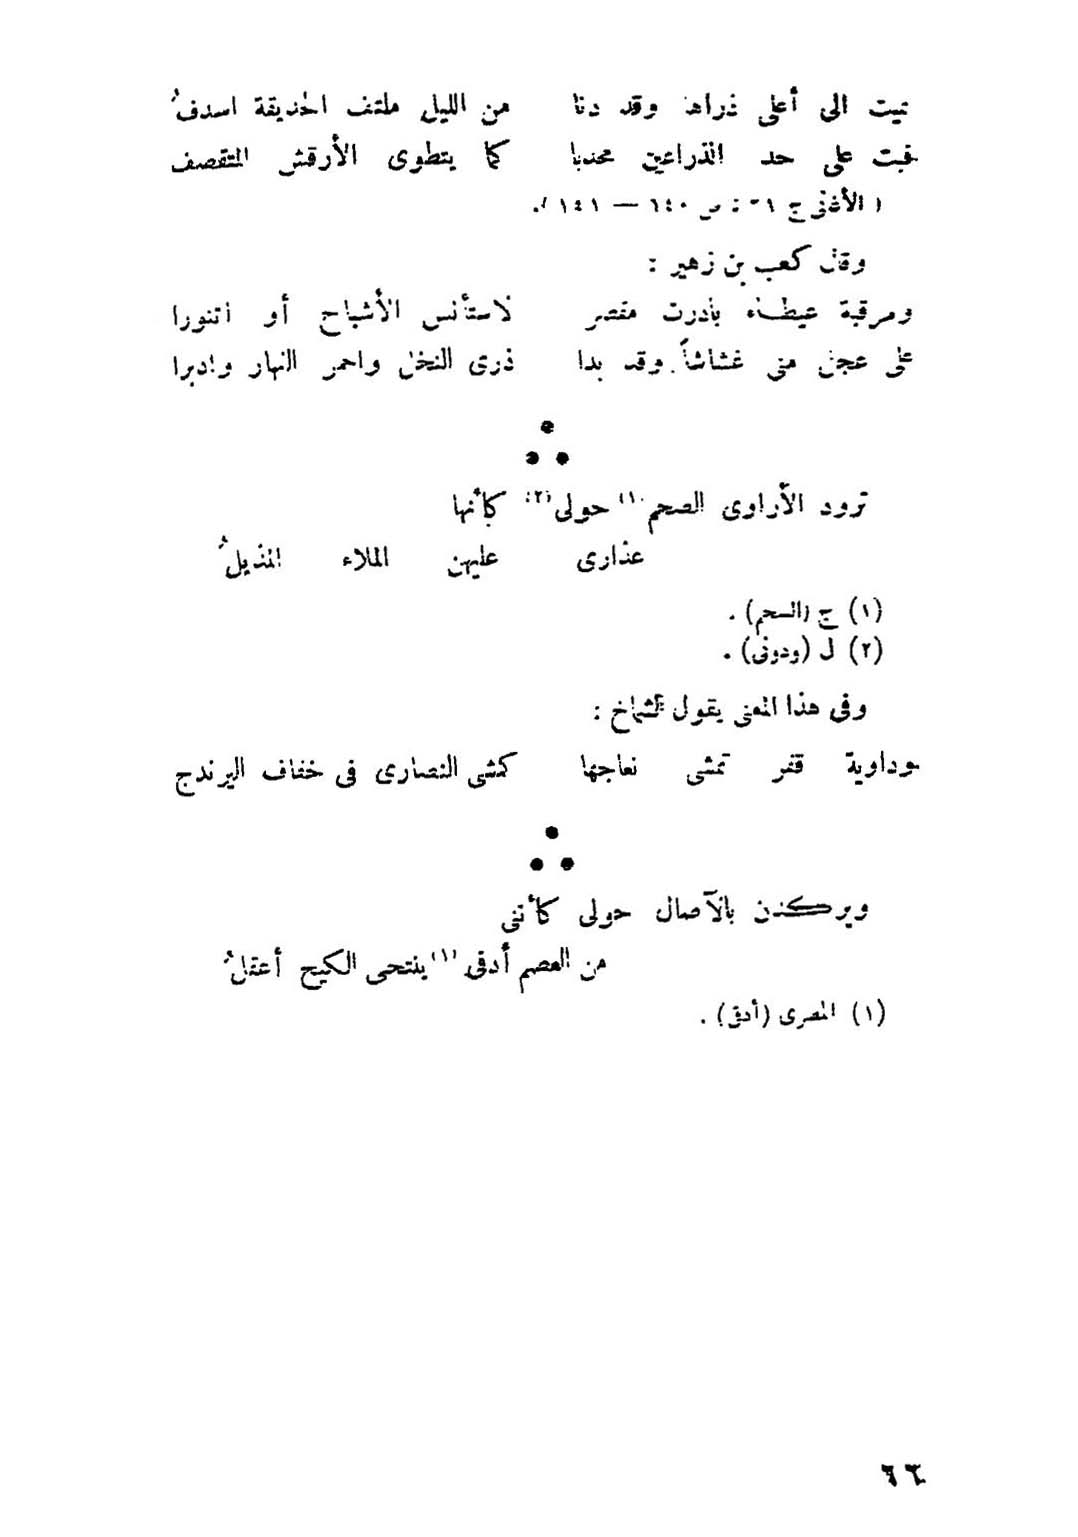 نميت الى أعلى ذراها وقد دنا من الليل ملتف الحديقة اسدفُ
فبت على حد الذراعين محدبا كما يتطوى الأرقش المتقصف
( الأغانى ج ٢١ ص ١٤٠ — ١٤١ ).
وقال كعب بن زهير :
ومرقبة عيطاء بادرت مقصر لاستأنس الأشباح أو اتنورا
على عجل منى غشاشاً وقد بدا ذرى النخل واحمر النهار وادبرا
ترود الأراوى الصحم (١) حولى (٢) كأنها
عذارى عليهن الملاء المذيلُ
(١) ج (السحم) .
(٢) ل (ودونى) .
وفى هذا المعنى يقول الشماخ :
وداوية قفر تمشى نعاجها كمشى النصارى فى خفاف اليرندج
ويركدن بالآصال حولى كأننى
من العصم أدفى (١) ينتحى الكيح أعقلُ
(١) المصرى (أدق) .
٦٦